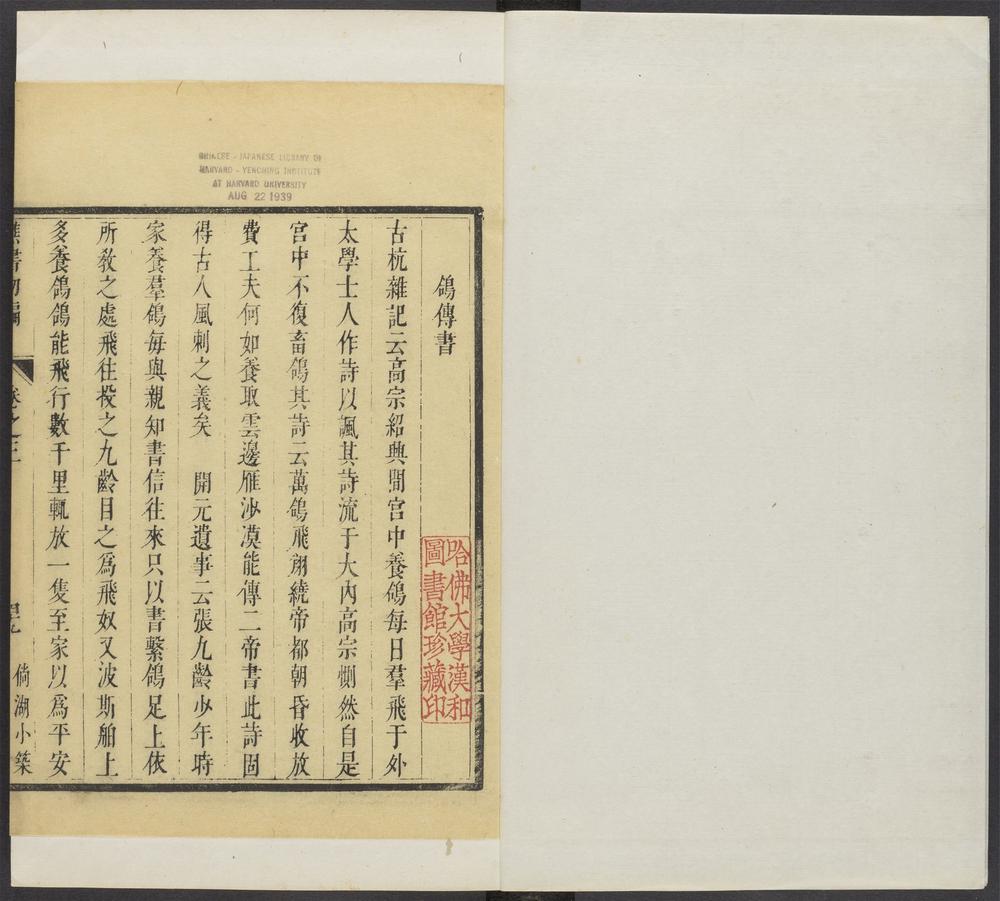 CHINESE - JAPANESE LIBRARY OF
HARVARD - YENCHING INSTITUTE
AT HARVARD UNIVERSITY
AUG 22 1939
鴿傳書
古杭雜記云高宗紹興間宮中養鴿每日羣飛于外
太學士人作詩以諷其詩流于大內高宗惻然自是
宮中不復畜鴿其詩云萬鴿飛翔繞帝都朝昏收放
費工夫何如養取雲邊雁沙漠能傳二帝書此詩固
得古人風刺之義矣 開元遺事云張九齡少年時
家養羣鴿每與親知書信往來只以書繫鴿足上依
所教之處飛往投之九齡目之爲飛奴又波斯舶上
多養鴿鴿能飛行數千里輒放一隻至家以爲平安
樵書初編 卷之三 倘湖小築
哈佛大學漢和
圖書館珍藏印